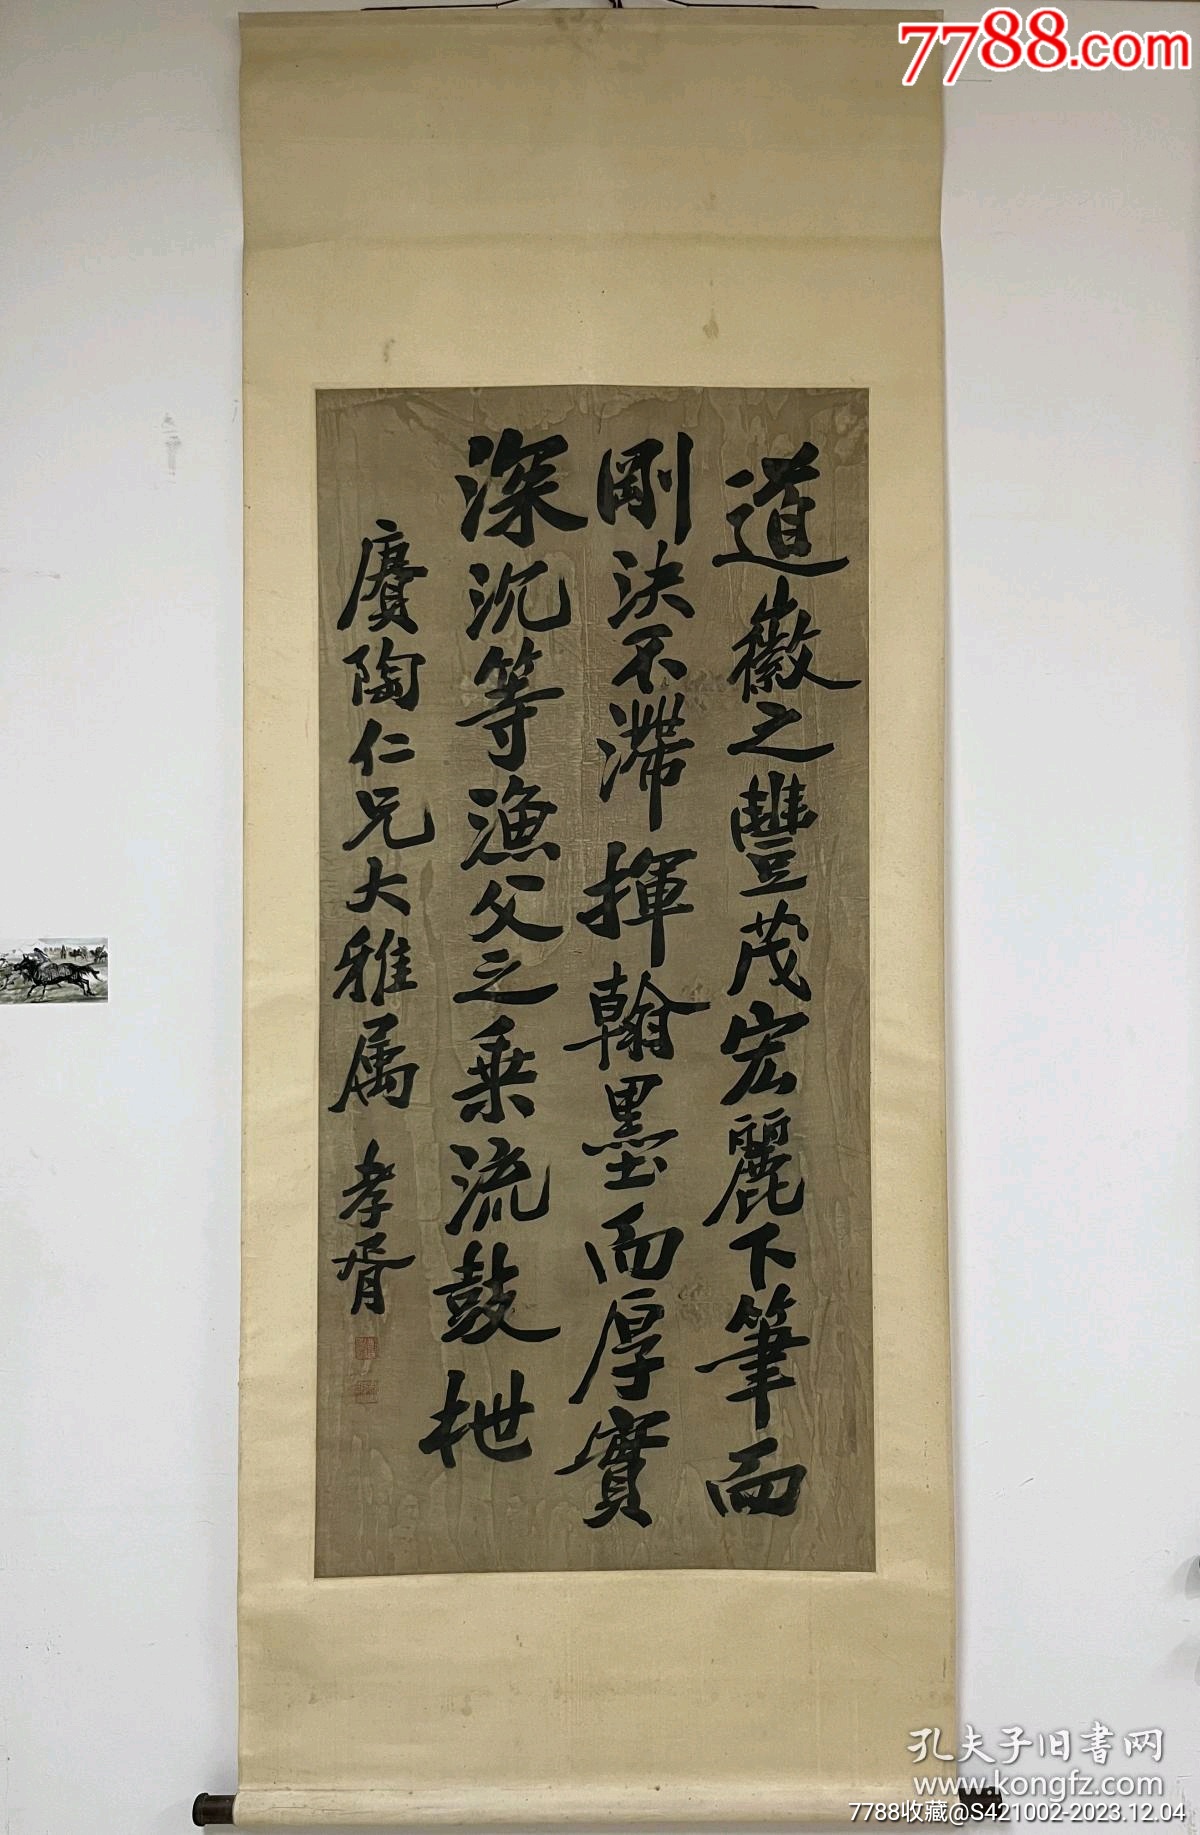 道徽之豐茂宏麗下筆而
剛決不滯揮翰墨而厚實
深沉等漁父之乘流鼓枻
賡陶仁兄大雅属 孝胥
7788.com
孔夫子旧書网
www.kongfz.com
7788收藏@S421002-2023.12.04